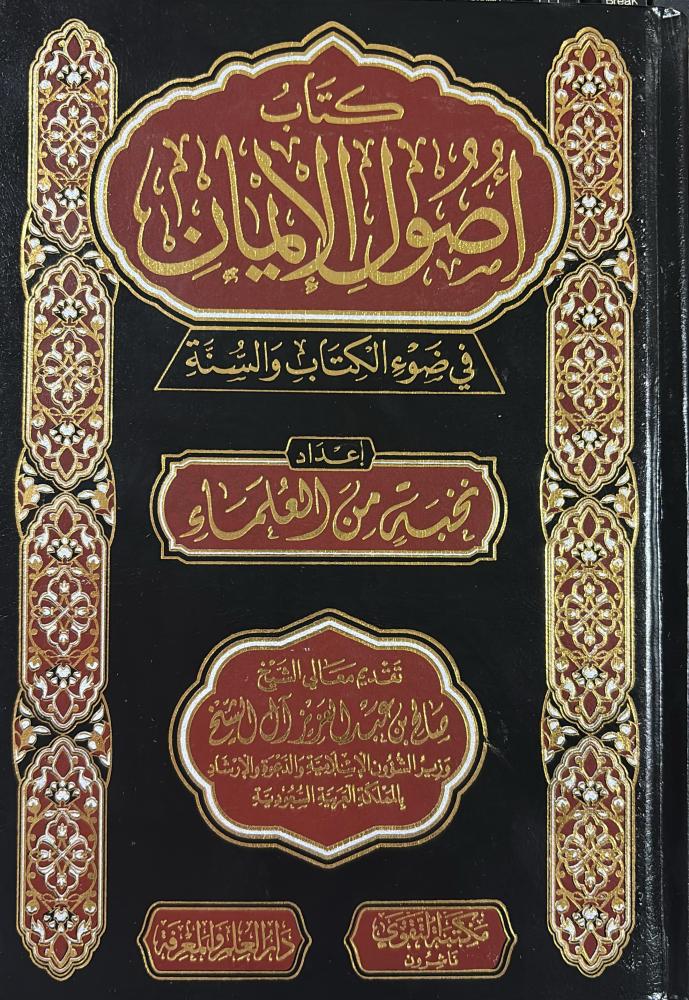 Break
كتاب
أصول الإيمان
في ضوء الكتاب والسنة
إعداد
نخبة من العلماء
تقديم معالي الشيخ
صالح بن عبد العزيز آل الشيخ
وزير الشؤون الإسلامية والدعوة والإرشاد
بالمملكة العربية السعودية
مكتبة التقوى
ناشرون
دار العلم والمعرفة